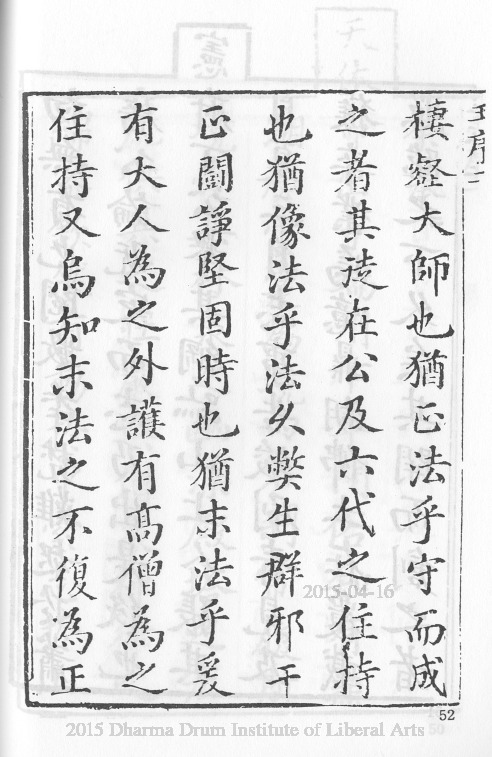 棲壑大師也猶正法乎守而成
之者其徒在公及六代之住持
也猶像法乎法久獘生群邪干
正鬪諍堅固時也猶末法乎爰
有大人為之外護有高僧為之
住持又烏知末法之不復為正
2015-04-16
52
2015 Dharma Drum Institute of Liberal Arts